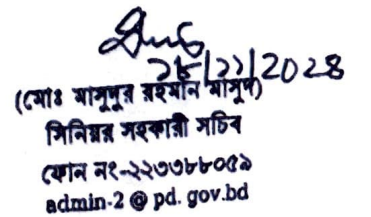 ২৮/১১/2024
(মোঃ মাসুদুর রহমান মাসুদ)
সিনিয়র সহকারী সচিব
ফোন নং-২২৩৩৮৮০৫৯
admin-2 @ pd. gov.bd